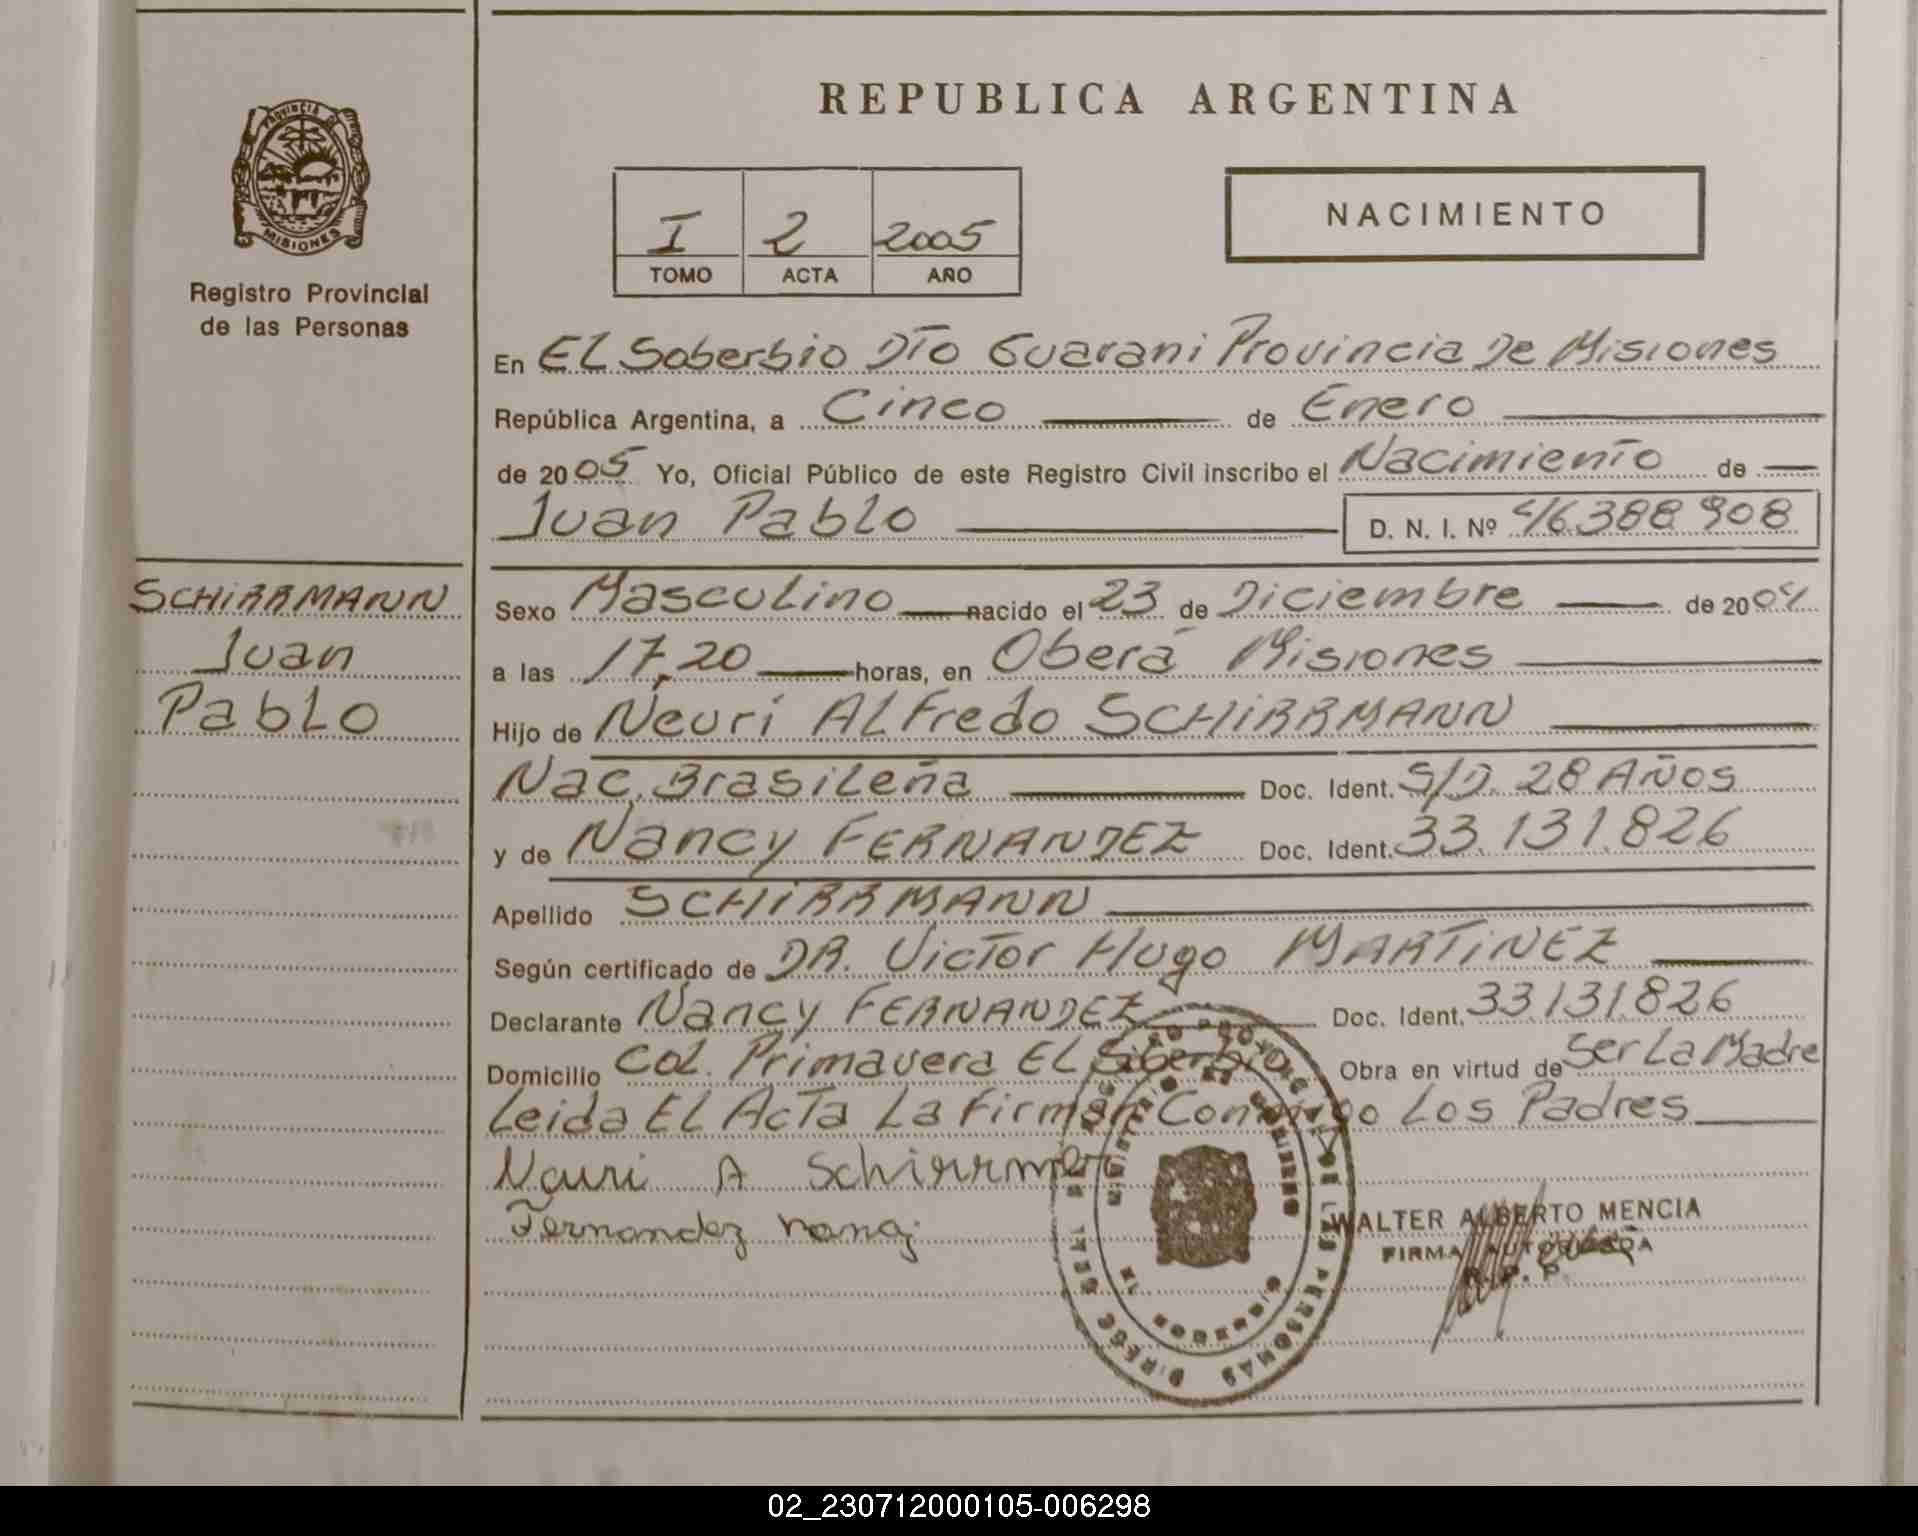 REPUBLICA ARGENTINA
PROVINCIA DE
MISIONES
Registro Provincial
de las Personas
I 2 2005
TOMO ACTA AÑO
NACIMIENTO
En EL Soberbio DTo Guarani Provincia De Misiones
República Argentina, a Cinco de Enero
de 2005 Yo, Oficial Público de este Registro Civil inscribo el Nacimiento de
Juan Pablo D. N. I. Nº 46.388.908
SCHIRRMANN
Juan
Pablo
Sexo Masculino nacido el 23 de Diciembre de 2004
a las 17,20 horas, en Oberá Misiones
Hijo de Neuri ALFredo SCHIRRMANN
Nac. Brasileña Doc. Ident. S/D. 28 AÑOS
y de Nancy FERNANDEZ Doc. Ident. 33.131.826
Apellido SCHIRRMANN
Según certificado de DR. Victor Hugo MARTINEZ
Declarante Nancy FERNANDEZ Doc. Ident. 33.131.826
Domicilio Col. Primavera EL Soberbio Obra en virtud de Ser La Madre
Leida EL Acta La Firman Conmigo Los Padres
Neuri A Schirrmann
Fernandez
WALTER ALBERTO MENCIA
FIRMA AUTORIZADA
R. P. P.
02_230712000105-006298